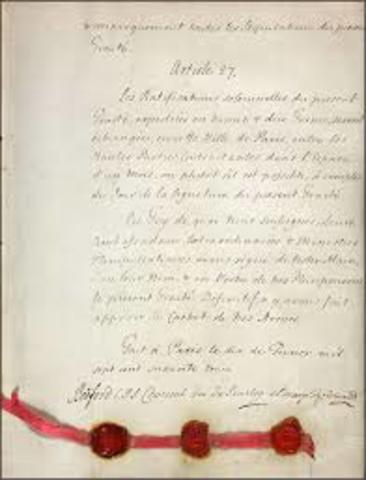 & unanimement toutes les Stipulations du présent
Traité.
Article 27.
Les Ratifications solemnelles du présent
Traité, expédiées en bonne & due Forme, seront
échangées, en cette Ville de Paris, entre les
Hautes Parties Contractantes dans l'Espace
d'un Mois, ou plutôt s'il est possible, à compter
du Jour de la Signature du présent Traité.
En Foy de quoi Nous soussignés leurs
Ambassadeurs Extraordinaires & Ministres
Plenipotentiaires avons signé de notre Main,
en leur Nom, & en Vertu de nos Pleinpouvoirs
le présent Traité Definitif, & y avons fait
apposer le Cachet de nos Armes.
Fait à Paris le dix de Fevrier mil
sept cent soixante trois.
Bedford C.P.S. Choiseul Duc de Praslin el Marq. de Grimaldi